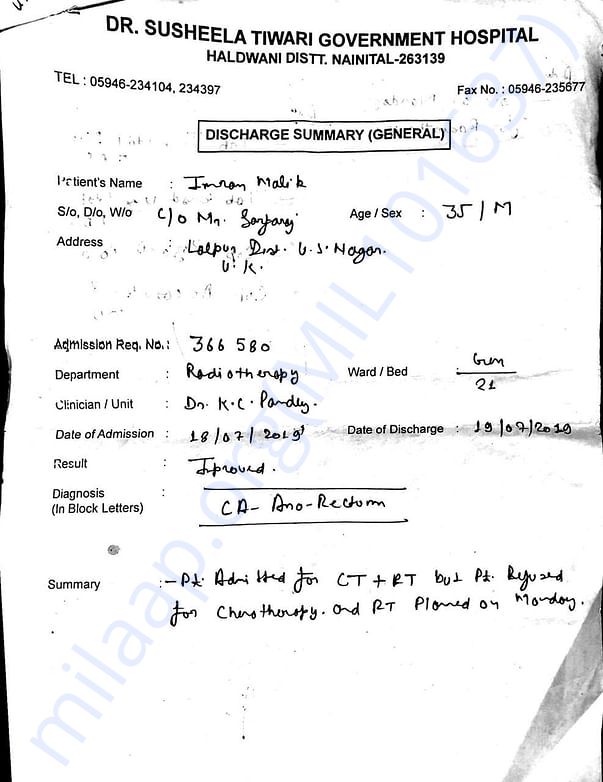 DR. SUSHEELA TIWARI GOVERNMENT HOSPITAL
HALDWANI DISTT. NAINITAL-263139
TEL : 05946-234104, 234397
Fax No. : 05946-235677
DISCHARGE SUMMARY (GENERAL)
Patient's Name : Imran Malik
S/o, D/o, W/o C/o Mr. Age / Sex : 35 / M
Address : Lalpur Dist. U.S. Nagar.
U.K.
Admission Req. No. : 366 580
Department : Radiotherapy Ward / Bed 21
Clinician / Unit : Dr. K.C. Pandey.
Date of Admission : 18/07/2019 Date of Discharge : 19/07/2019
Result : Improved.
Diagnosis : CA- Ano-Rectum
(In Block Letters)
Summary :- Pt. Admitted for CT + RT but Pt. Refused
for Chemotherapy. and RT Planed on Monday.
milaap.org(MIL101637)